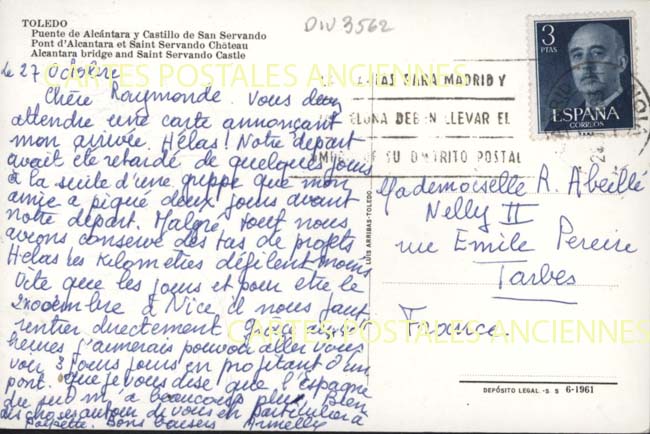 TOLEDO
Puente de Alcántara y Castillo de San Servando
Pont d'Alcantara et Saint Servando Château
Alcantara bridge and Saint Servando Castle
DIV 3562
le 27 Octobre
Chère Raymonde. Vous devez
attendre une carte annonçant
mon arrivée. Hélas! Notre départ
avait été retardé de quelques jours
à la suite d'une grippe que mon
amie a piqué deux jours avant
notre départ. Malgré tout nous
avons conservé des tas de projets
Hélas les kilomètres défilent moins
vite que les jours et pour être le
2 novembre à Nice il nous faut
rentrer directement
j'aimerais pouvoir aller vous
voir 3 jours en profitant d'un
pont. Que je vous dise que l'Espagne
du peu m'a beaucoup plu. Bien
des choses autour de vous en particulier à
Bons baisers Armelly
3
PTAS
ESPAÑA
CORREOS
PARA MADRID Y
DEBEN LLEVAR EL
SU DISTRITO POSTAL
Mademoiselle R. Abeillé
Nelly II
rue Emile Pereire
Tarbes
France.
LUIS ARRIBAS-TOLEDO
DEPÓSITO LEGAL - S S 6-1961
CARTES POSTALES ANCIENNES
CARTES POSTALES ANCIENNES